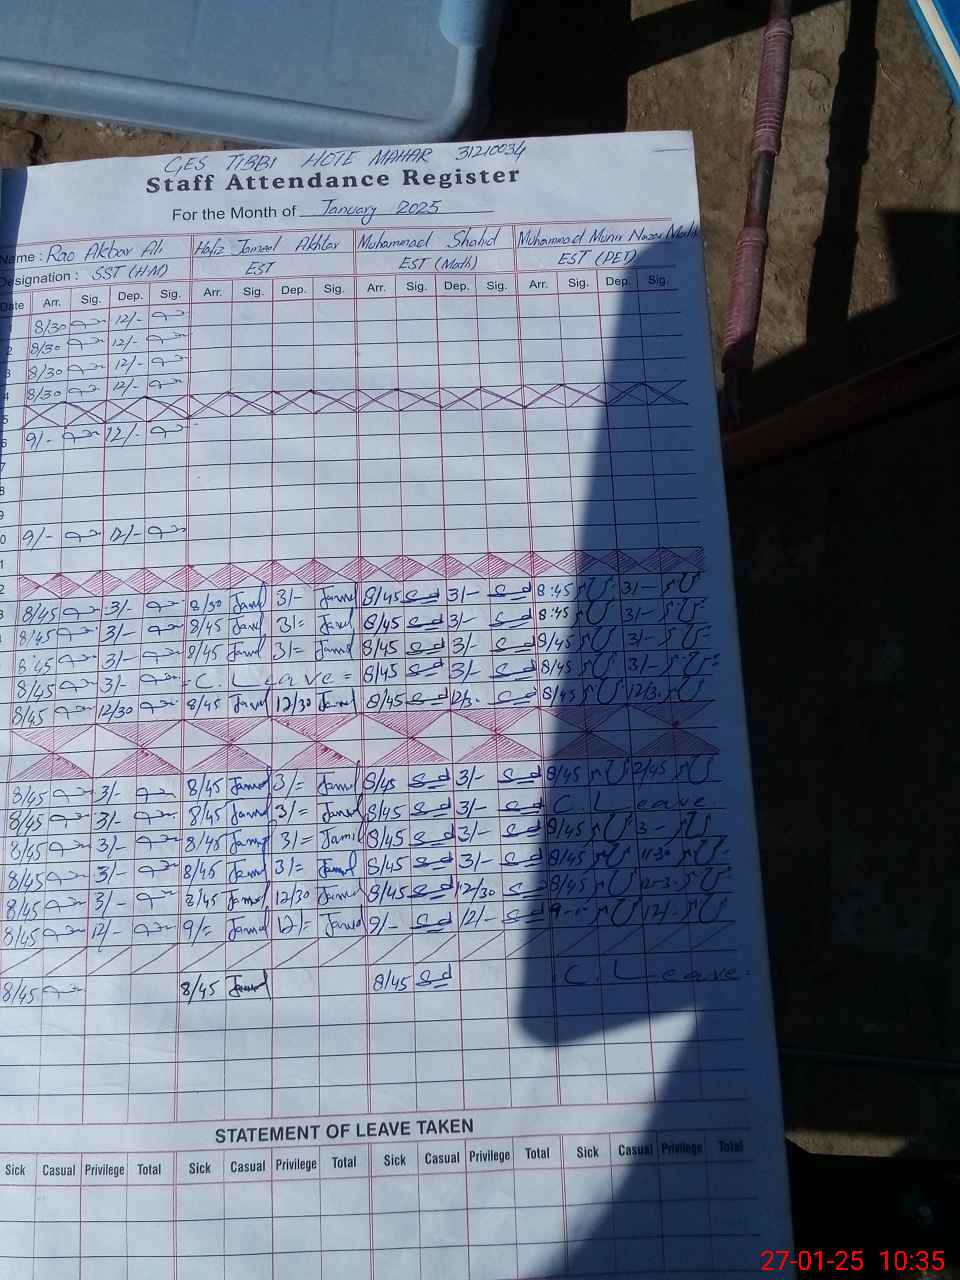 GES TIBBI HOTE MAHAR 31210034
Staff Attendance Register
For the Month of January 2025
Name : Rao Akbar Ali Hafiz Jameel Akhtar Muhammad Shahid Muhammad Munir Nazar Malik
Designation : SST (H.M) EST EST (Math) EST (PET)
Date Arr. Sig. Dep. Sig. Arr. Sig. Dep. Sig. Arr. Sig. Dep. Sig. Arr. Sig. Dep. Sig.
8/30 12/-
2 8/30 12/-
3 8/30 12/-
4 8/30 12/-
5
6 9/- 12/-
7
8
9
0 9/- 12/-
1
2
3 8/45 3/- 8/30 Jamel 3/- Jamel 8/45 3/- 8:45 3/-
8/45 3/- 8/45 Jamel 3/= Jamel 8/45 3/- 8:45 3/-
8:45 3/- 8/45 Jamel 3/= Jamel 8/45 3/- 8/45 3/-
8/45 3/- C. Leave = 8/45 3/- 8/45 3/-
8/45 12/30 8/45 Jamel 12/30 Jamel 8/45 12/3. 8/45 12/3.
8/45 3/- 8/45 Jamel 3/= Jamel 8/45 3/- 8/45 2/45
8/45 3/- 8/45 Jamel 3/= Jamel 8/45 3/- C. Leave.
8/45 3/- 8/45 Jamel 3/= Jamel 8/45 3/- 8/45 3-
8/45 3/- 8/45 Jamel 3/= Jamel 8/45 3/- 8/45 11-30
8/45 3/- 8/45 Jamel 12/30 Jamel 8/45 12/30 8/45 12-3.
8/45 12/- 9/= Jamel 12/= Jamel 9/- 12/- 12/-
8/45 8/45 Jamel 8/45 C. Leave.
STATEMENT OF LEAVE TAKEN
Sick Casual Privilege Total Sick Casual Privilege Total Sick Casual Privilege Total Sick Casual Privilege Total
27-01-25 10:35